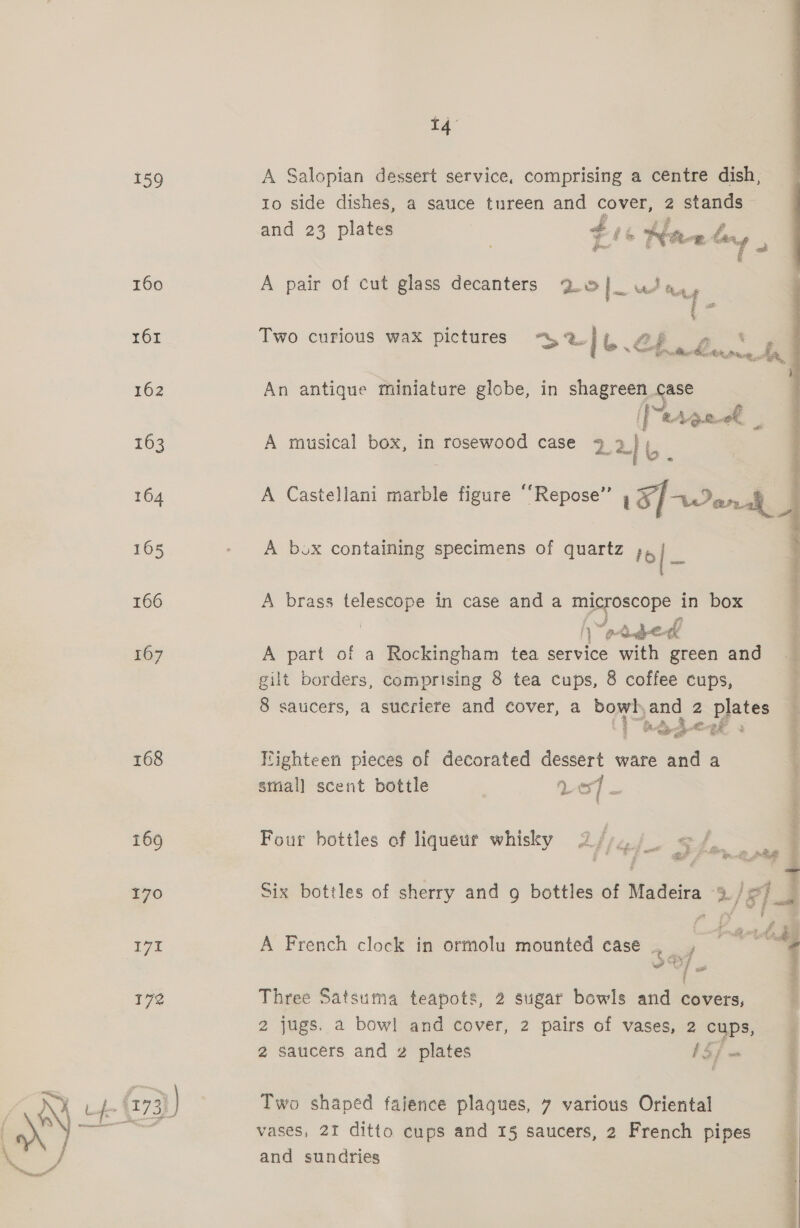 14
159 A Salopian dessert service, comprising a centre dish,
10 side dishes, a sauce tureen and cover, 2 stands
and 23 plates £16
160 A pair of cut glass decanters 20/-
161 Two curious wax pictures 32/6
162 An antique miniature globe, in shagreen case
passed
163 A musical box, in rosewood case 22/6
164 A Castellani marble figure “Repose” 18/-
165 A box containing specimens of quartz 10/-
166 A brass telescope in case and a microscope in box
passed
167 A part of a Rockingham tea service with green and
gilt borders, comprising 8 tea cups, 8 coffee cups,
8 saucers, a sucriere and cover, a bowl and 2 plates
passed
168 Eighteen pieces of decorated dessert ware and a
small scent bottle 20/-
169 Four bottles of liqueur whisky
170 Six bottles of sherry and 9 bottles of Madeira
171 A French clock in ormolu mounted case 30/-
172 Three Satsuma teapots, 2 sugar bowls and covers,
2 jugs, a bowl and cover, 2 pairs of vases, 2 cups,
2 saucers and 2 plates 15/-
173 Two shaped faience plaques, 7 various Oriental
vases, 21 ditto cups and 15 saucers, 2 French pipes
and sundries